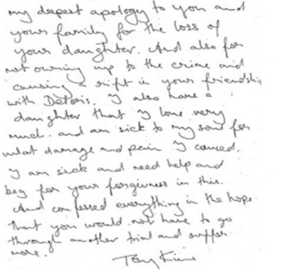 my deepest apology to you and
your family for the loss of
your daughter. And also for
not owning up to the crime and
causing a rift in your friendship
with Dolores. I also have a
daughter that I love very
much. and am sick to my soul for
what damage and pain I caused.
I am sick and need help and
beg for your forgiveness in this.
And confessed everything in the hope
that you would not have to go
through another trial and suffer
more.
Tony